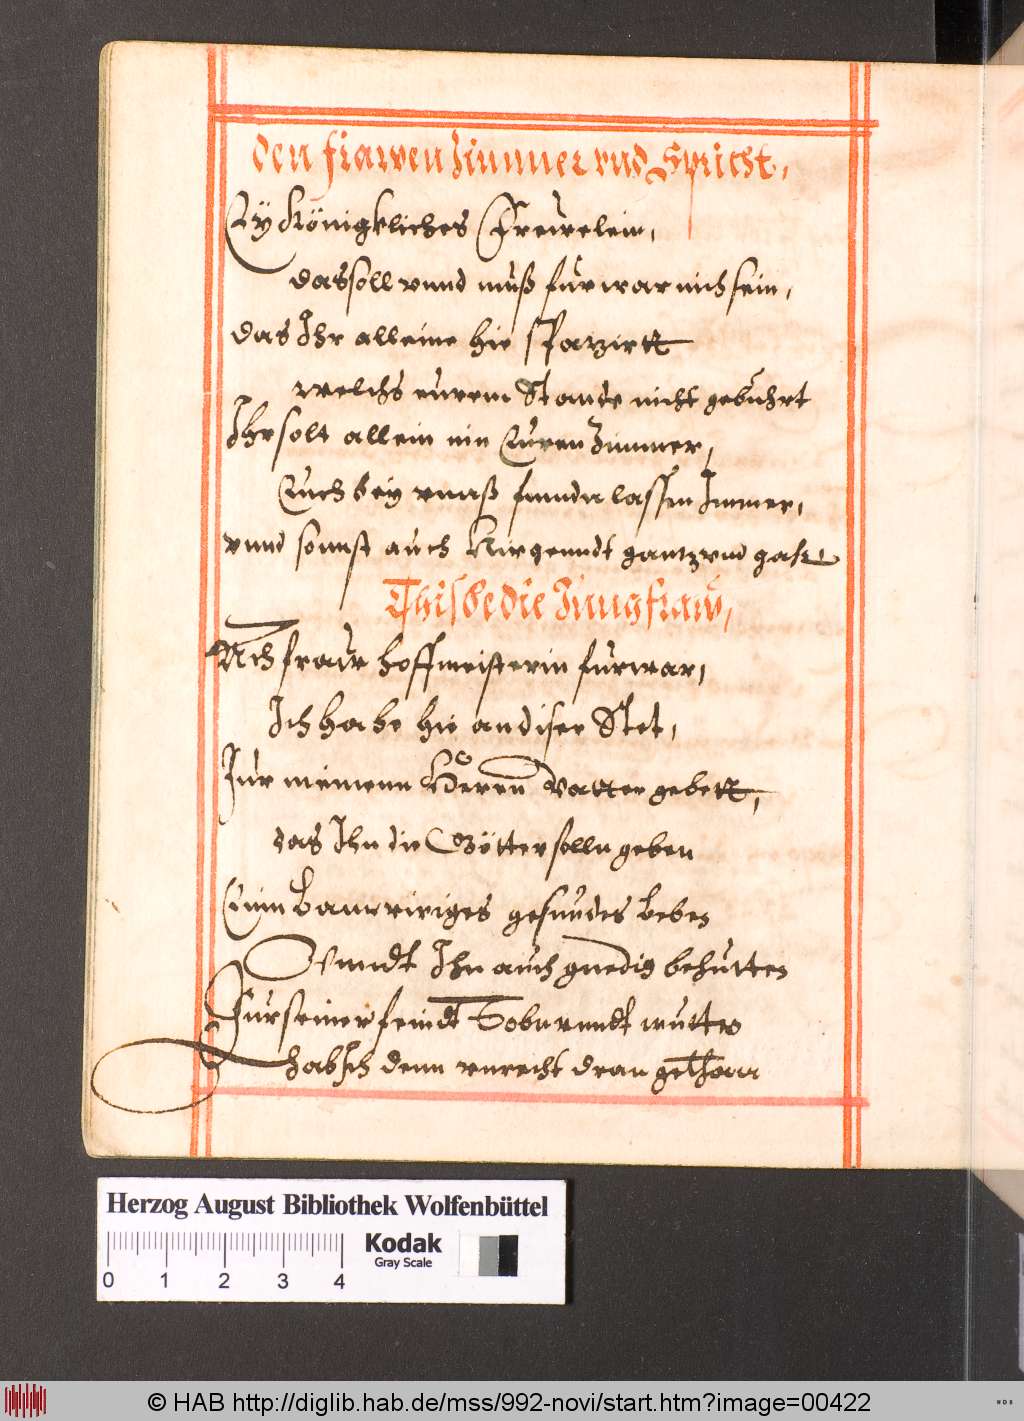 den frawen Zimmer vnd Spricht,
Ey Königkliches Frewelein,
das soll vnnd muß fürwar nich sein,
das Ihr alleine hie spatzirtt
welchs eurem Stande nicht gebührt
Ihr solt allein inn Euren Zimmer,
Euch bey vnnß finnden lassen Immer,
vnnd sonnst auch Nirgenndt gantz vnd gahr
Thisbe die Jungfraw,
Ach fraw hoffmeisterin fürwar,
Ich habe hie an diser Stet,
Fur meinenn Herrn Vatter gebett,
das Ihn die Götter solln geben
Einn Lanwiriges gesundes Leben
Vnndt Ihn auch gnedig behutten
Fur seiner feindt Tobn vnndt wutten
hab Ich denn vnrecht dran gethann
Herzog August Bibliothek Wolfenbüttel
Kodak
Gray Scale
0 1 2 3 4
© HAB http://diglib.hab.de/mss/992-novi/start.htm?image=00422